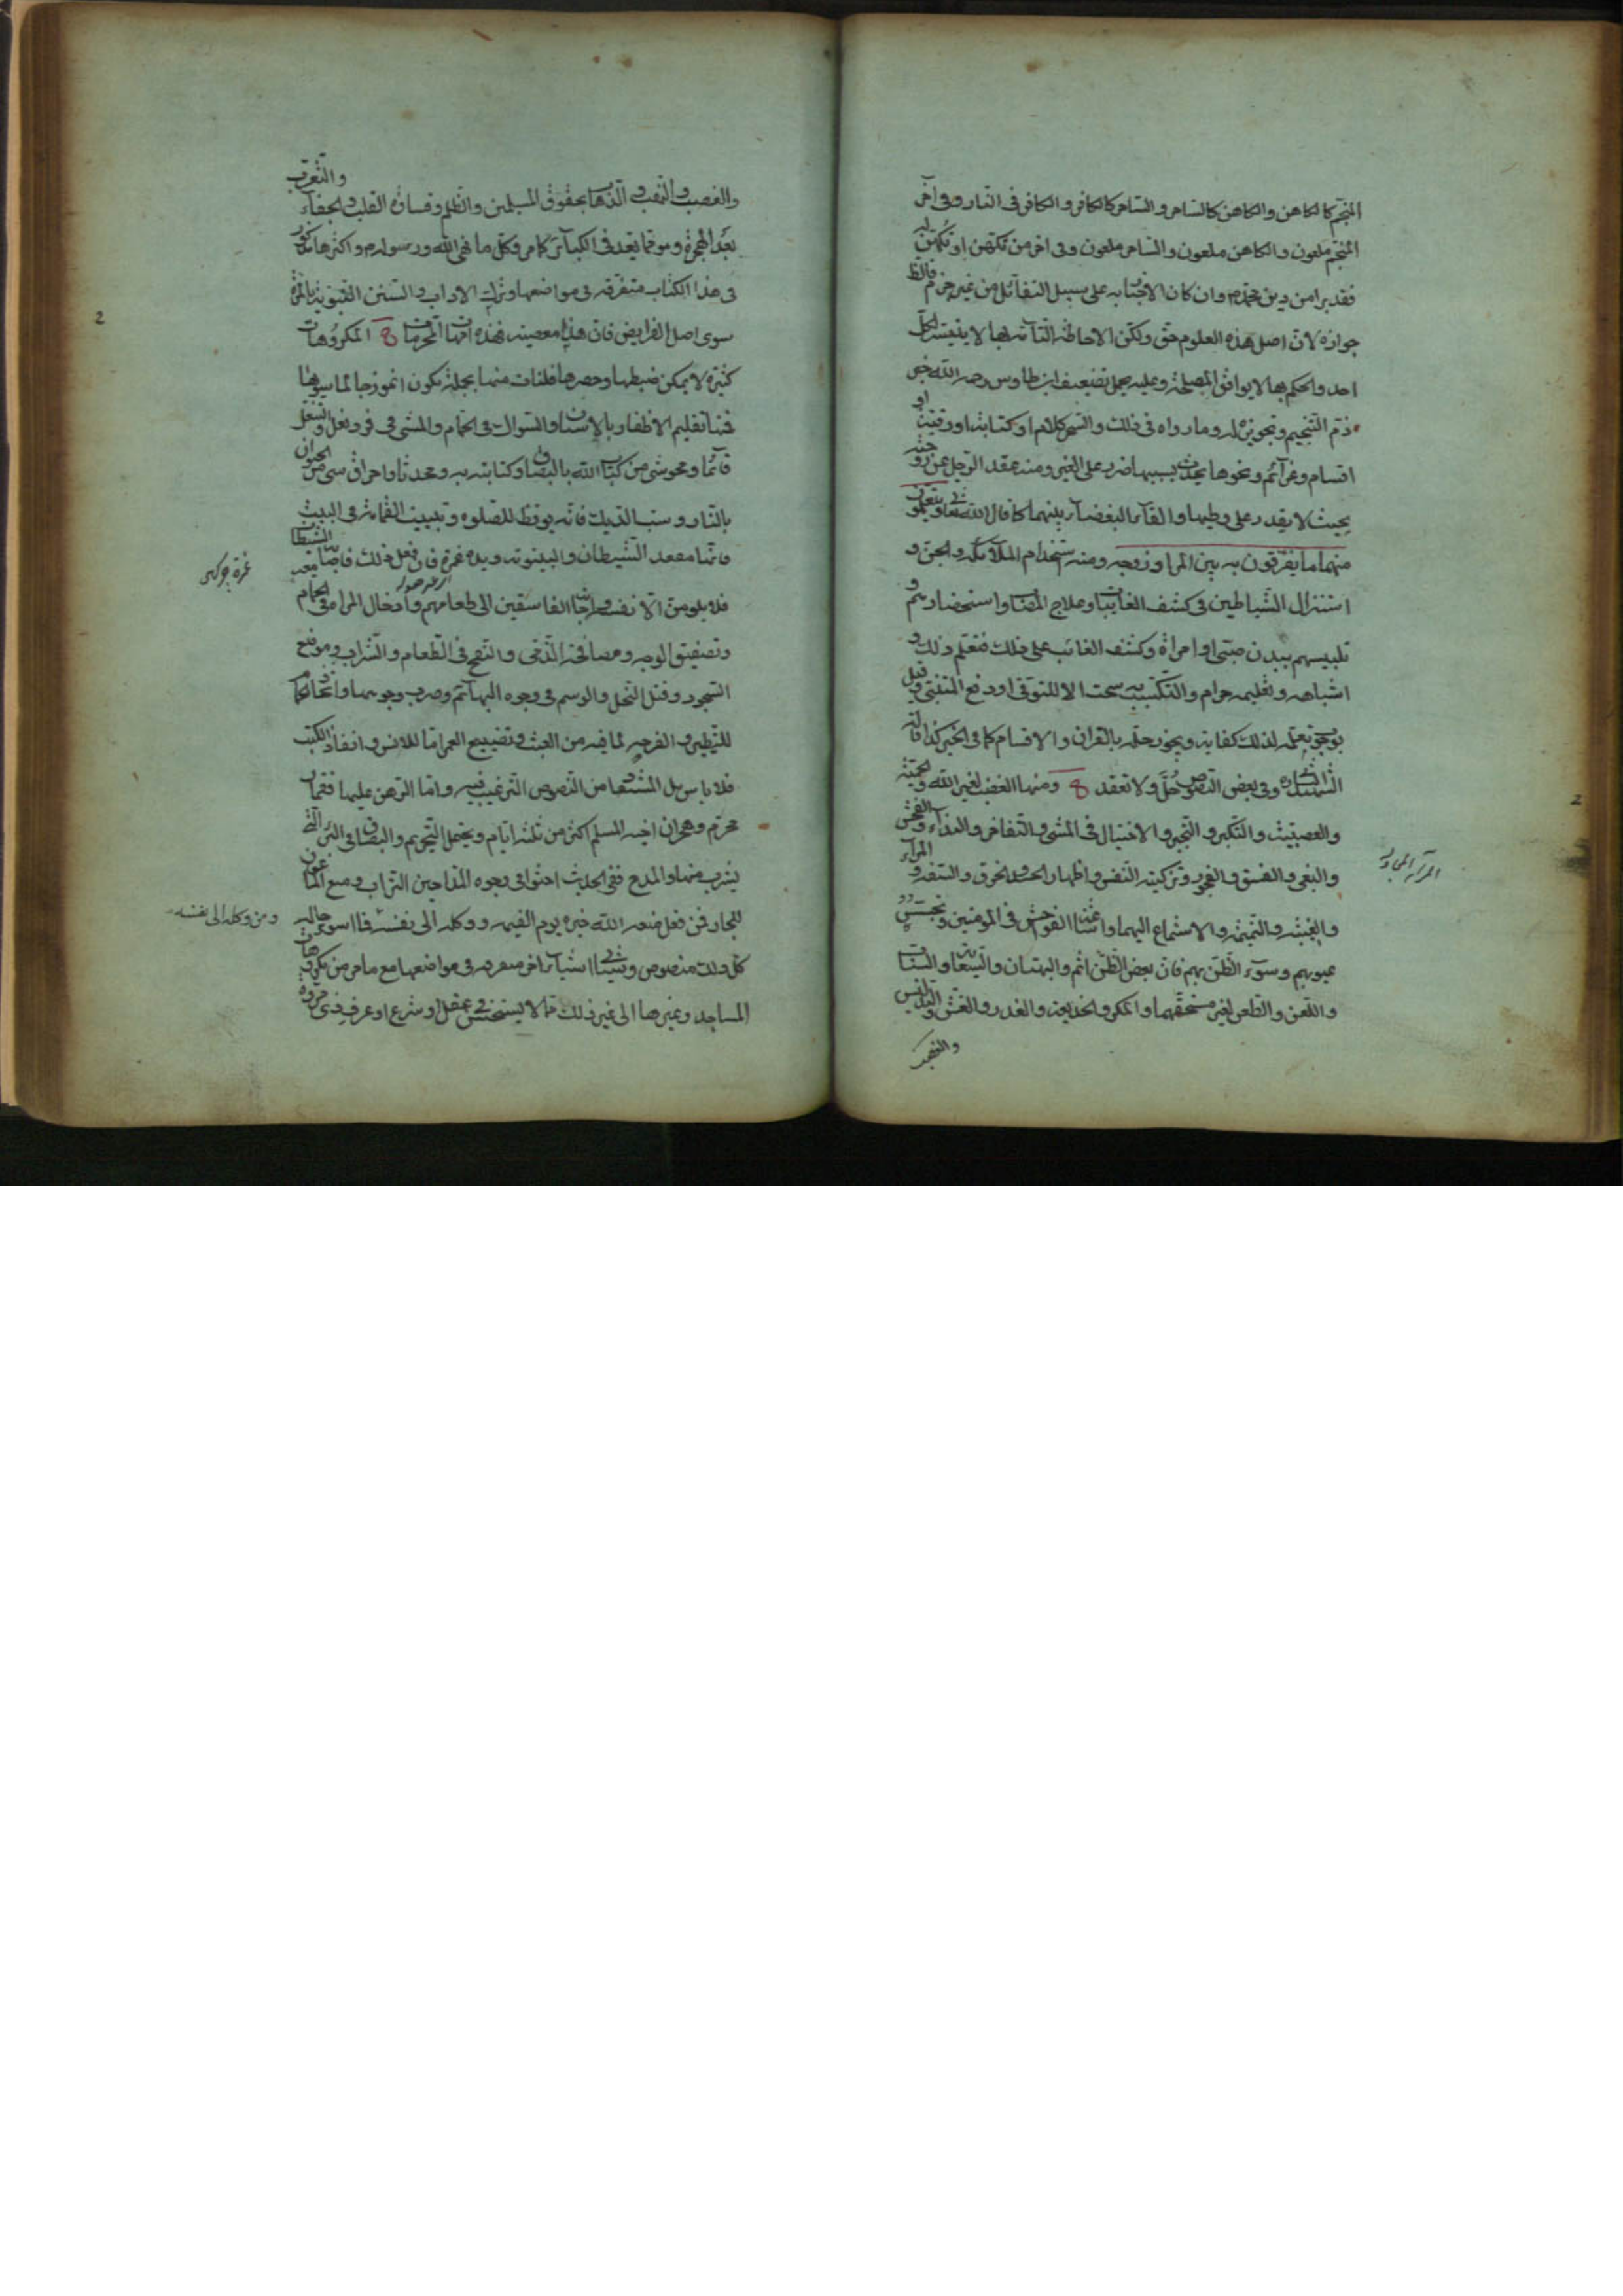 المنجم كالكاهن والكاهن كالساحر والساحر كالكافر والكافر فى النار وفى اخر
المنجم ملعون والكاهن ملعون والساحر ملعون وفى اخر من تكهن او تكهن له
فقد برا من دين محمد ص وان كان الاخبار به على سبيل التفأل من غير جزم فالظ
جوازه لان اصل هذه العلوم حق ولكن الاحاطة التامة بها لا يتيسر لكل
احد والحكم بها لا يوافق المصلحة وعليه يحمل تضعيف ابن طاوس رحمه الله خبر
ذم التنجيم وتجويزه له وما رواه فى ذلك والسحر كلام او كتابة او رقية او
اقسام وعزائم ونحوها يحدث بسببها ضرر على الغير ومنه عقد الرجل عن زوجته
بحيث لا يقدر على وطيها والقاء البغضاء بينهما كما قال الله تعالى فيتعلمون
منهما ما يفرقون به بين المرء وزوجه ومنه استخدام الملائكة والجن و
استنزال الشياطين فى كشف الغايبات وعلاج المصاب واستحضارهم و
تلبيسهم ببدن صبى او امراة وكشف الغائب على ذلك فتعلم ذلك و
اشباهه وتعليمه حرام والتكسب به سحت الا للتوقى او دفع المتنبى وقيل
بوجوب تعلمه لذلك كفاية ويجوز حله بالقران والاقسام كما فى الخبر كذا قاله
الشهيد ره وفى بعض النصوص حل ولا تعقد ومنها الغضب لغير الله والحمية
والعصبية والتكبر والتجبر والاختيال فى المشى والتفاخر والبذاء والفحش
والبغى والفسق والفجور وتزكية النفس واظهار الحسد والخرق والسفه والمراء
والغيبة والنميمة والاستماع اليهما واشاعة الفواحش فى المومنين وتجسس
عيوبهم وسوء الظن بهم فان بعض الظن اثم والبهتان والسعاية والسباب
واللعن والطعن لغير مستحقهما والمكر والخديعة والغدر والغش والتدليس
والغصب والنهب والذهاب بحقوق المسلمين والظلم وقساوة القلب والجفاء والتعرب
بعد الهجرة وهو مما يعد فى الكبائر كما مر وكل ما نهى الله ورسوله ص واكثرها مذكور
فى هذا الكتاب متفرقة فى مواضعها وترك الاداب والسنن النبوية بالمرة
سوى اصل الفرايض فان هذا معصية فهذه امهات المحرمات المكروهات
كثيرة لا يمكن ضبطها وحصرها فلنات منها بجملة يكون انموذجا لما سواها
فمنها تقليم الاظفار بالاسنان والسواك فى الحمام والمشى فى فرد نعل والتنعل
قائما ومحو شى من كتاب الله بالبصاق وكتابته به ومحدثا واحراق شى من الحيوان
بالنار وسب الديك فانه يوقظ للصلوة وتبييت القمامة فى البيت
فانها مقعد الشيطان والبيتوتة ويده غمرة فان فعل ذلك فاصابه الشيطان
فلا يلومن الا نفسه واجابة الفاسقين الى طعامهم وادخال المراة فى الحمام
وتصفيق الوجه ومصافحة الذمى والنفخ فى الطعام والشراب وموضع
السجود وقتل النحل والوسم فى وجوه البهائم وضرب وجوهها واتخاذ الحمام
للتطير والفرجة لما فيه من العبث وتضييع العمر اما للانس وانفاذ الكتب
فلا باس بل المستفاد من النصوص الترغيب فيه واما الرهن عليها فقمار
محرم وهجران اخيه المسلم اكثر من ثلثة ايام ويحتمل التحريم والبصاق فى البئر التى
يشرب منها والمدح ففى الحديث احثوا فى وجوه المداحين التراب ومنع الماعون
للجار فمن فعل منعه الله خيره يوم القيمة ووكله الى نفسه فما اسوء حاله
كل ذلك منصوص وسياتى اشياء اخر متفرقة فى مواضعها مع ما مر من مكروهات
المساجد وغيرها الى غير ذلك مما لا يستحسن فى عقل او شرع او عرف ذى مروة
ومن وكله الى نفسه